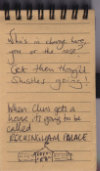 She's in charge here,
you or the
Get them though!
going!
When Chris gets a
house it's going to be
called
ROCKINGHAM PALACE